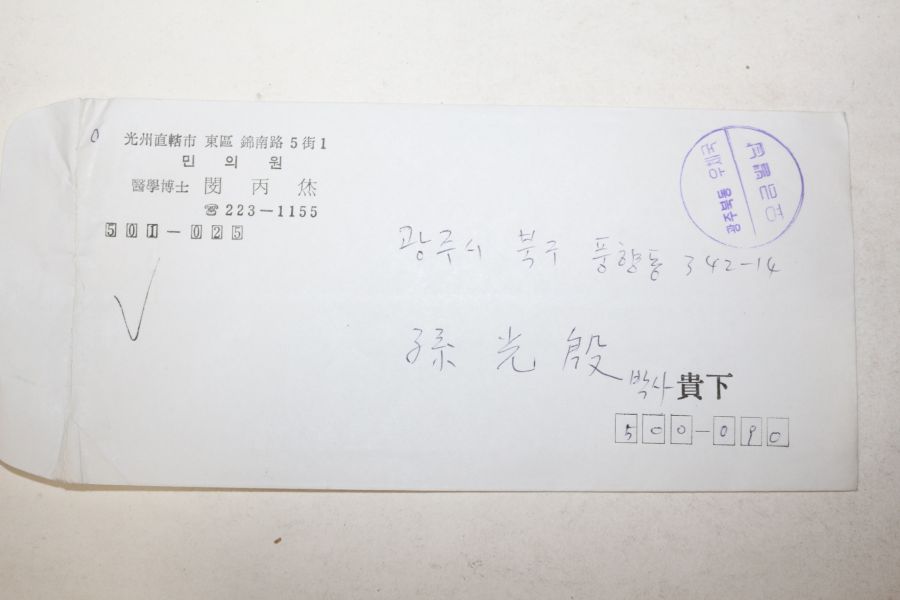 光州直轄市 東區 錦南路 5 街 1
민 의 원
醫學博士 閔 丙 烋
☏ 223-1155
501-025
광주북동 우체국
요금별납
광주시 북구 풍향동 342-14
孫 光 殷
박사 貴下
500-090